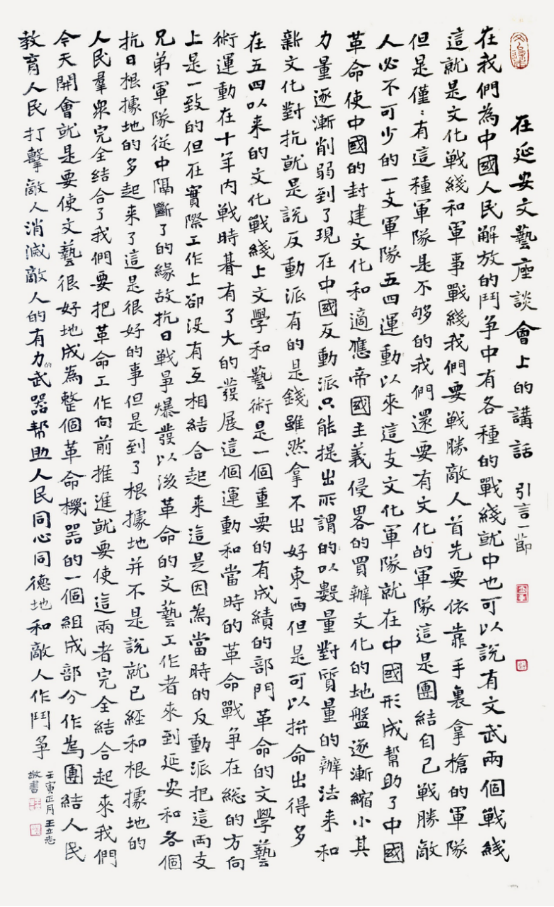 在延安文藝座談會上的講話 引言一節
在我們為中國人民解放的鬥争中有各種的戰綫就中也可以說有文武兩個戰綫
這就是文化戰綫和軍事戰綫我們要戰勝敵人首先要依靠手裏拿槍的軍隊
但是僅僅有這種軍隊是不够的我們還要有文化的軍隊這是團結自己戰勝敵
人必不可少的一支軍隊五四運動以来這支文化軍隊就在中國形成幫助了中國
革命使中國的封建文化和適應帝國主義侵畧的買辦文化的地盤逐漸縮小其
力量逐漸削弱到了現在中國反動派只能提出所謂的以數量對質量的辦法来和
新文化對抗就是說反動派有的是錢雖然拿不出好東西但是可以拚命出得多
在五四以来的文化戰綫上文學和藝術是一個重要的有成績的部門革命的文學藝
術運動在十年内戰時朞有了大的發展這個運動和當時的革命戰争在總的方向
上是一致的但在實際工作上卻没有互相結合起来這是因為當時的反動派把這兩支
兄弟軍隊從中隔斷了的緣故抗日戰爭爆發以後革命的文藝工作者来到延安和各個
抗日根據地的多起来了這是很好的事但是到了根據地并不是說就已經和根據地的
人民羣衆完全結合了我們要把革命工作向前推進就要使這兩者完全結合起来我們
今天開會就是要使文藝很好地成為整個革命機器的一個組成部分作為團結人民
教育人民打擊敵人消滅敵人的有力的武器帮助人民同心同德地和敵人作鬥争
壬寅正月王立志
敬書